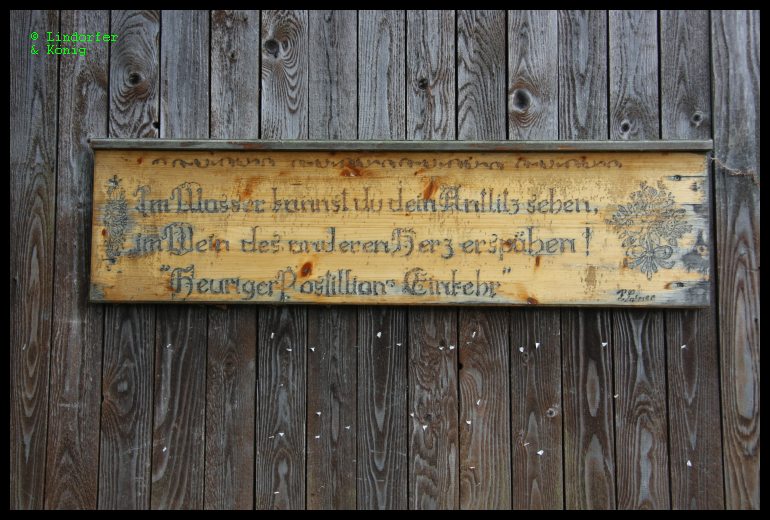 © Lindorfer
& König
Im Wasser kannst du dein Antlitz sehen,
im Wein des anderen Herz erspähen!
"Heuriger Postillion-Einkehr"